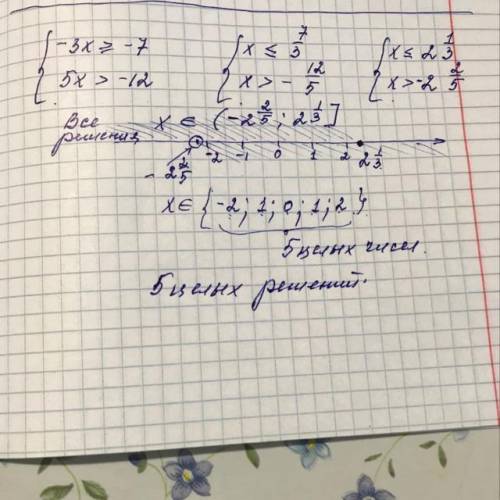 { -3x ≥ -7   { x ≤ 7/3   { x ≤ 2 1/3
{ 5x > -12   { x > - 12/5   { x > -2 2/5
Все решения x ∈ (-2 2/5 ; 2 1/3]
-2 -1 0 1 2 2 1/3
- 2 2/5
x ∈ {-2; 1; 0; 1; 2}
5 целых чисел.
5 целых решений.